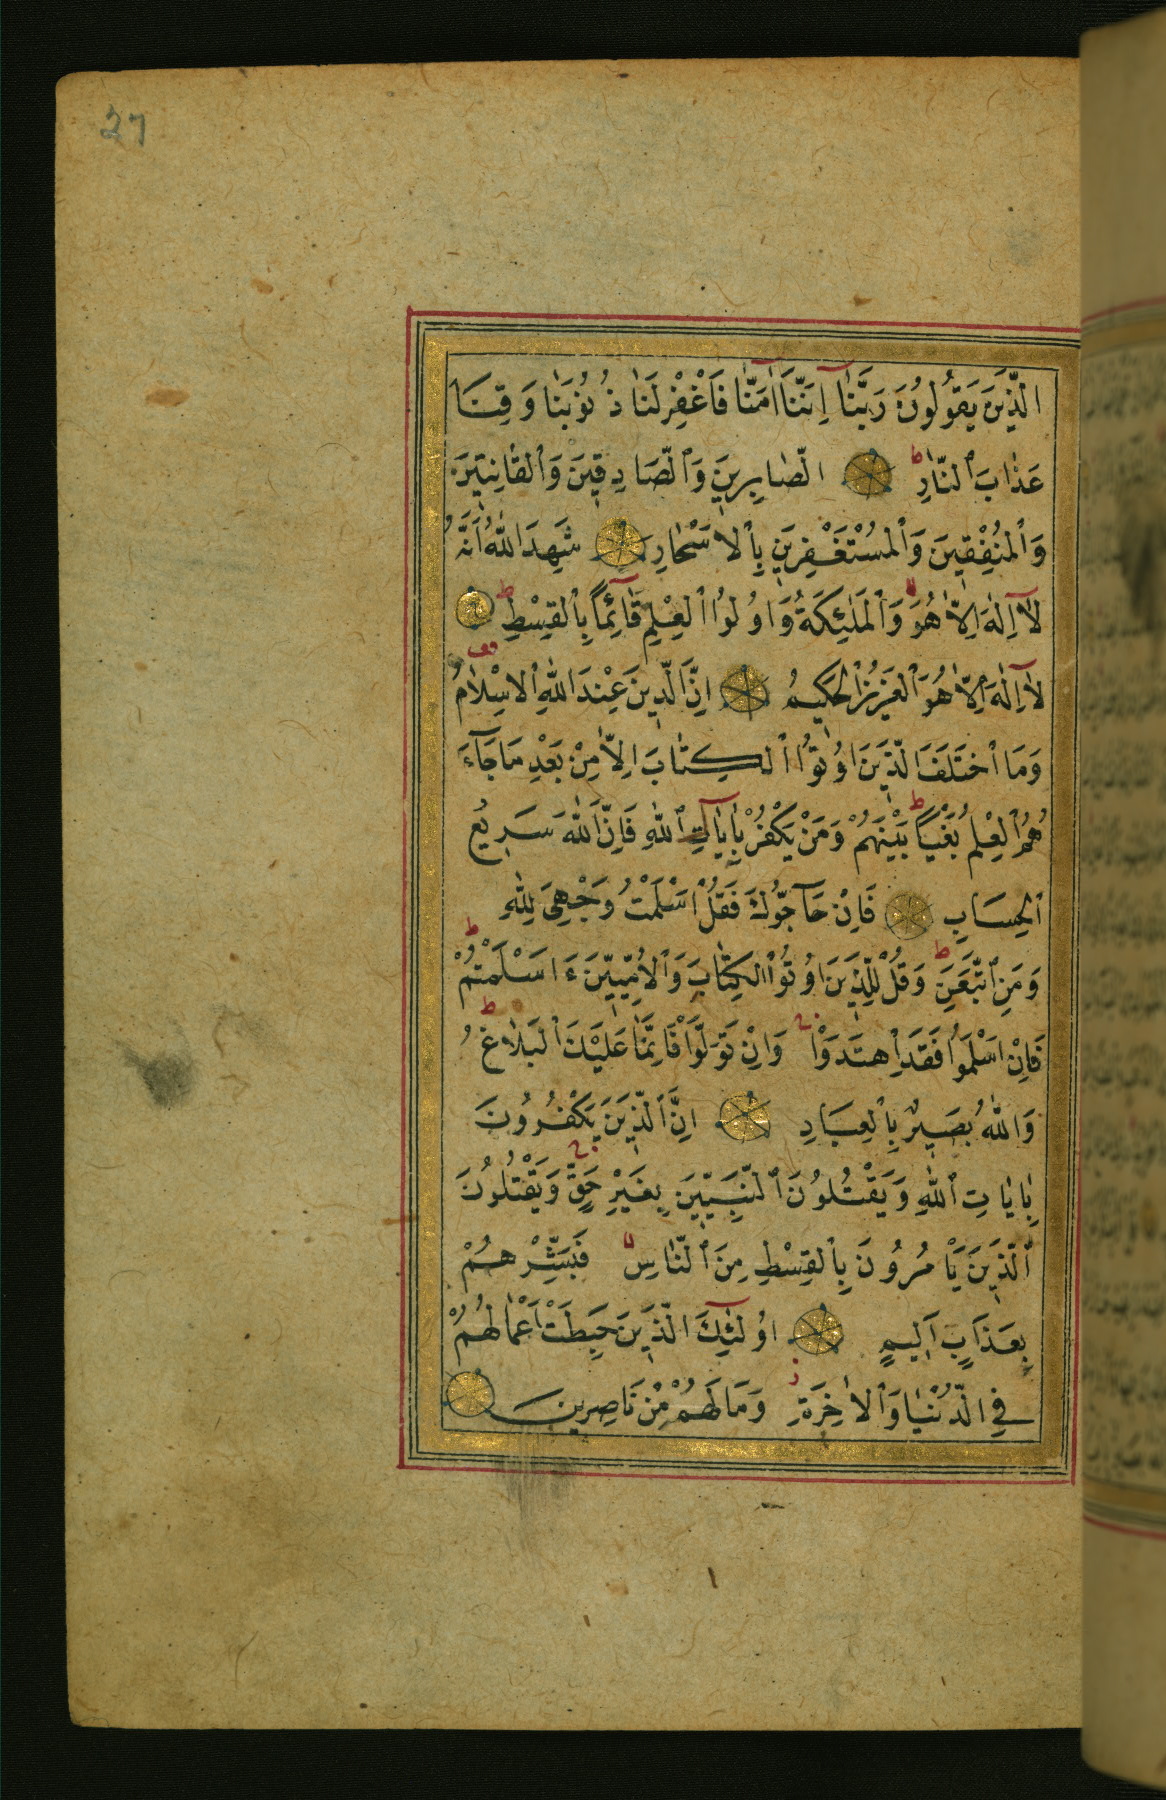 27
الَّذِينَ يَقُولُونَ رَبَّنَآ اِنَّنَآ اٰمَنَّا فَاغْفِرْلَنَا ذُنُوبَنَا وَقِنَا
عَذَابَ ٱلنَّارِ ط الصَّابِرِينَ وَٱلصَّادِقِينَ وَٱلْقَانِتِينَ
وَٱلْمُنْفِقِينَ وَٱلْمُسْتَغْفِرِينَ بِٱلْاَسْحَارِ شَهِدَ ٱللّٰهُ اَنَّهُ
لَآ اِلٰهَ اِلَّا هُوَ لا وَٱلْمَلٰئِكَةُ وَاُولُوا ٱلْعِلْمِ قَآئِمًا بِٱلْقِسْطِ ط
لَآ اِلٰهَ اِلَّا هُوَ ٱلْعَزِيزُ ٱلْحَكِيمُ اِنَّ الدِّينَ عِنْدَ ٱللّٰهِ ٱلْاِسْلَامُ قف
وَمَا ٱخْتَلَفَ الَّذِينَ اُوتُوا ٱلْكِتَابَ اِلَّا مِنْ بَعْدِ مَا جَآءَ
هُمُ ٱلْعِلْمُ بَغْيًا بَيْنَهُمْ ط وَمَنْ يَكْفُرْ بِاٰيَاتِ ٱللّٰهِ فَاِنَّ ٱللّٰهَ سَرِيعُ
ٱلْحِسَابِ فَاِنْ حَآجُّوكَ فَقُلْ اَسْلَمْتُ وَجْهِيَ لِلّٰهِ
وَمَنِ ٱتَّبَعَنِ ط وَقُلْ لِلَّذِينَ اُوتُوا ٱلْكِتَابَ وَٱلْاُمِّيِّينَ ءَاَسْلَمْتُمْ ط
فَاِنْ اَسْلَمُوا فَقَدِ ٱهْتَدَوْا ج وَاِنْ تَوَلَّوْا فَاِنَّمَا عَلَيْكَ ٱلْبَلَاغُ ط
وَٱللّٰهُ بَصِيرٌ بِٱلْعِبَادِ اِنَّ ٱلَّذِينَ يَكْفُرُونَ
بِاٰيَاتِ ٱللّٰهِ وَيَقْتُلُونَ ٱلنَّبِيِّينَ بِغَيْرِ حَقٍّ ج وَيَقْتُلُونَ
ٱلَّذِينَ يَأْمُرُونَ بِٱلْقِسْطِ مِنَ ٱلنَّاسِ لا فَبَشِّرْهُمْ
بِعَذَابٍ اَلِيمٍ اُولٰٓئِكَ الَّذِينَ حَبِطَتْ اَعْمَالُهُمْ
فِي الدُّنْيَا وَٱلْاٰخِرَةِ ز وَمَالَهُمْ مِنْ نَاصِرِينَ